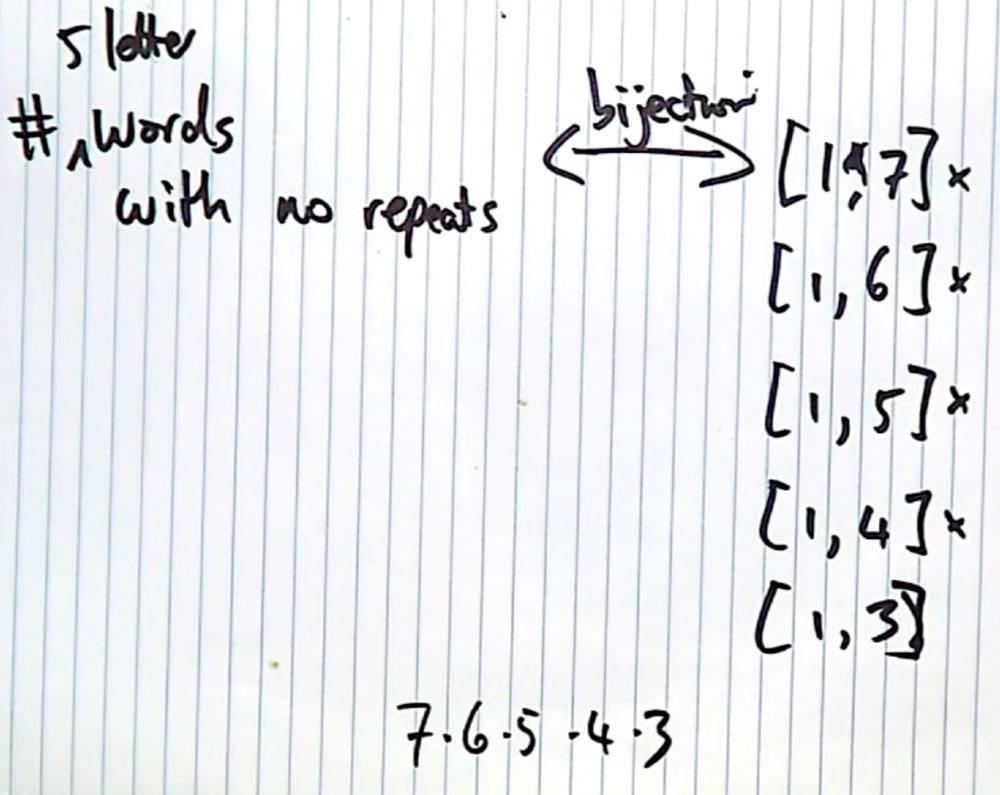 5 letter
# ^ words
with no repeats
bijection
[1,7] ×
[1,6] ×
[1,5] ×
[1,4] ×
[1,3]
7·6·5·4·3